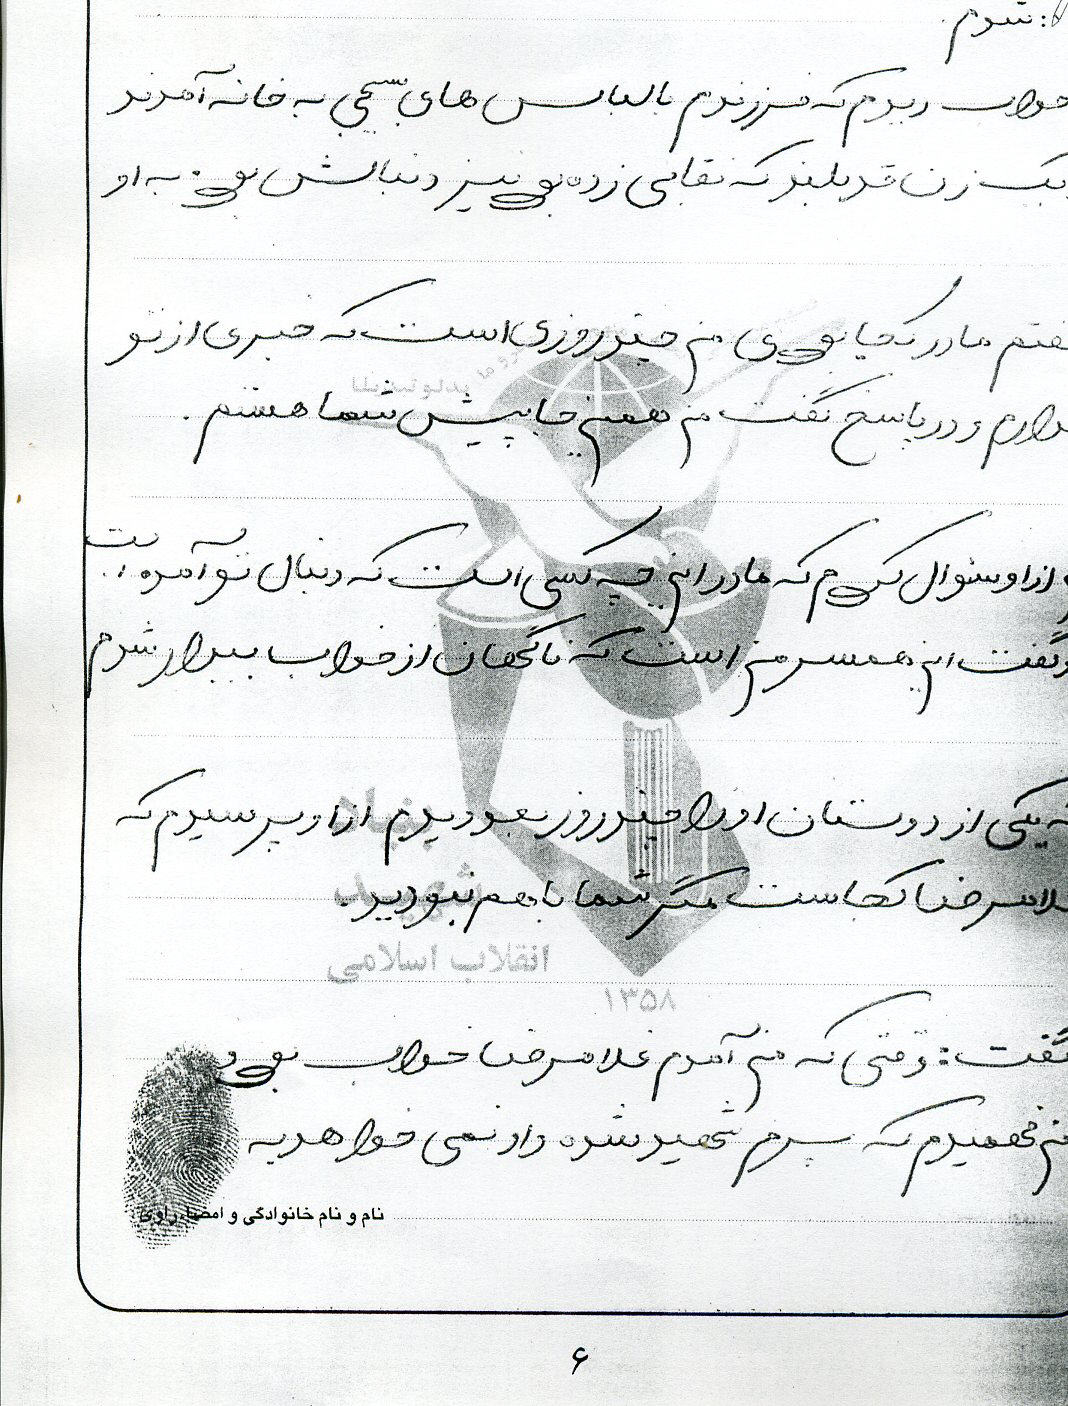 شوم.
خواب دیدم که فرزندم با لباس های بسیجی به خانه آمدند
یک زن قد بلند که نقابی زده بود نیز دنبالش بود. به او
گفتم مادر کجا بودی من چند روزی است که خبری از تو
ندارم و در پاسخ گفت من همین جا پیش شما هستم.
از او سئوال کردم که مادر این چه کسی است که دنبال تو آمده است.
گفت این همسر من است که ناگهان از خواب بیدار شدم
که یکی از دوستان او را چند روز بعد دیدم از او پرسیدم که
غلامرضا کجاست مگر شما با هم نبودید.
گفت: وقتی که من آمدم غلامرضا خواب بود و
من فهمیدم که پسرم شهید شده و او نمی خواهد به
نام و نام خانوادگی و امضاء راوی
بنیاد
شهید
انقلاب اسلامی
۱۳۵۸
۶